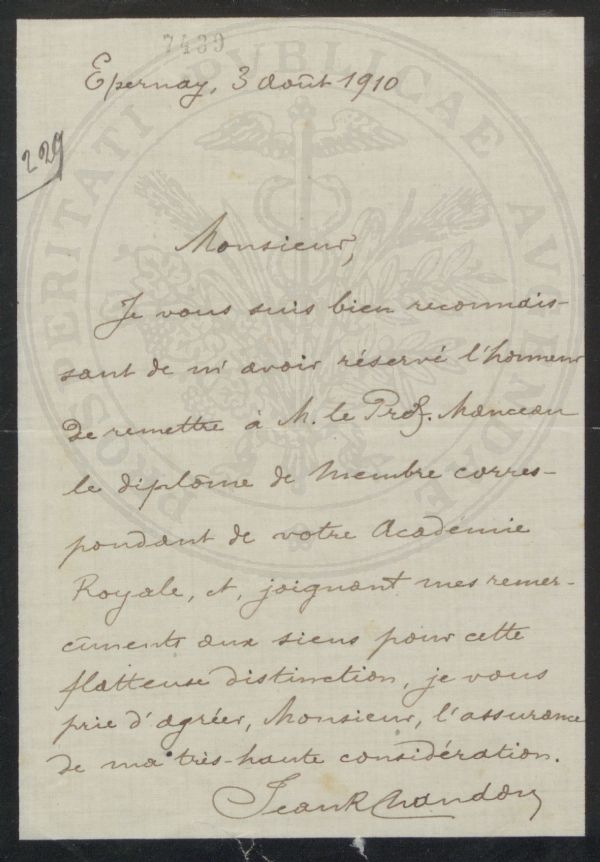 7439
Epernay, 3 août 1910
229
Monsieur,
Je vous suis bien reconnais-
sant de m'avoir réservé l'honneur
de remettre à M. le Prof. Manceau
le diplôme de Membre corres-
pondant de votre Académie
Royale, et, joignant mes remer-
cîments aux siens pour cette
flatteuse distinction, je vous
prie d'agréer, Monsieur, l'assurance
de ma très-haute considération.
Jean R Chandon
PROSPERITATI PVBLICAE AVGENDAE